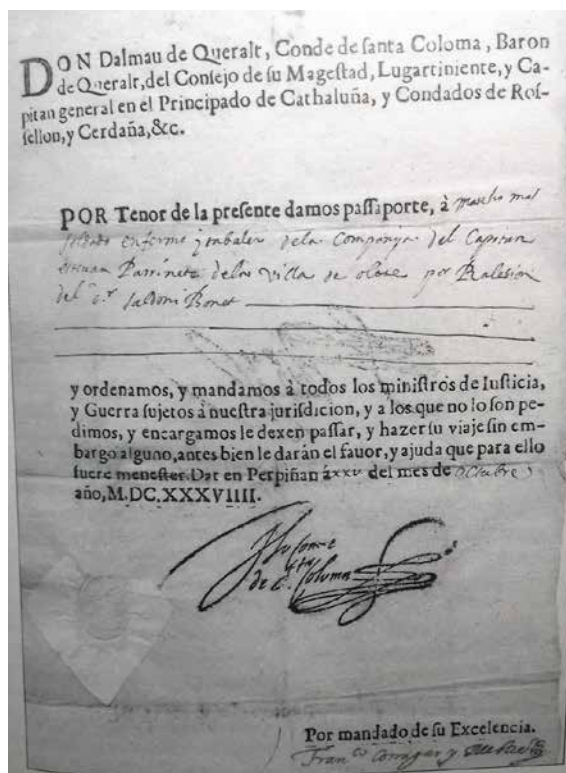 DON Dalmau de Queralt, Conde de ſanta Coloma, Baron
de Queralt, del Conſejo de ſu Mageſtad, Lugartiniente, y Ca-
pitan general en el Principado de Cathaluña, y Condados de Roſ-
ſellon, y Cerdaña, &c.
POR Tenor de la preſente damos paſſaporte, à
enfermo dela Companya del Capitan
dela villa de por
del
y ordenamos, y mandamos à todos los miniſtros de Iuſticia,
y Guerra ſujetos à nueſtra juriſdicion, y a los que no lo ſon pe-
dimos, y encargamos le dexen paſſar, y hazer ſu viaje ſin em-
bargo alguno, antes bien le darán el fauor, y ajuda que para ello
fuere meneſter. Dat en Perpiñan à xxv del mes de octubre
año, M.DC.XXXVIIII.
de Coloma
Por mandado de ſu Excelencia.
Fran.co